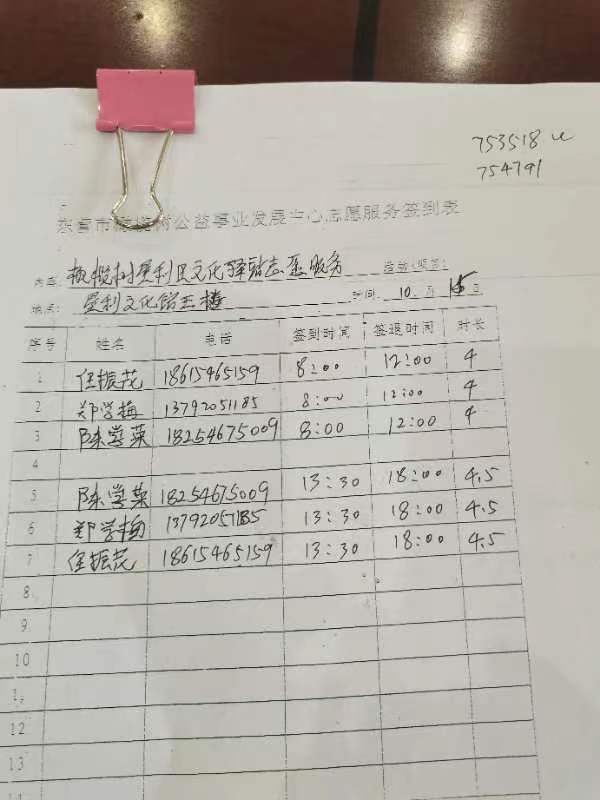 753518
754791
东营市橄榄树公益事业发展中心志愿服务签到表
内容: 橄榄树垦利区文化驿站志愿服务
地点: 垦利文化馆五楼 时间: 10.月 15日
序号 姓名 电话 签到时间 签退时间 时长
1 任振花 18615465159 8:00 12:00 4
2 郑学梅 13792051185 8:00 12:00 4
3 陈学菜 18254675009 8:00 12:00 4
4
5 陈学菜 18254675009 13:30 18:00 4.5
6 郑学梅 13792051185 13:30 18:00 4.5
7 任振花 18615465159 13:30 18:00 4.5
8
9
10
12
13